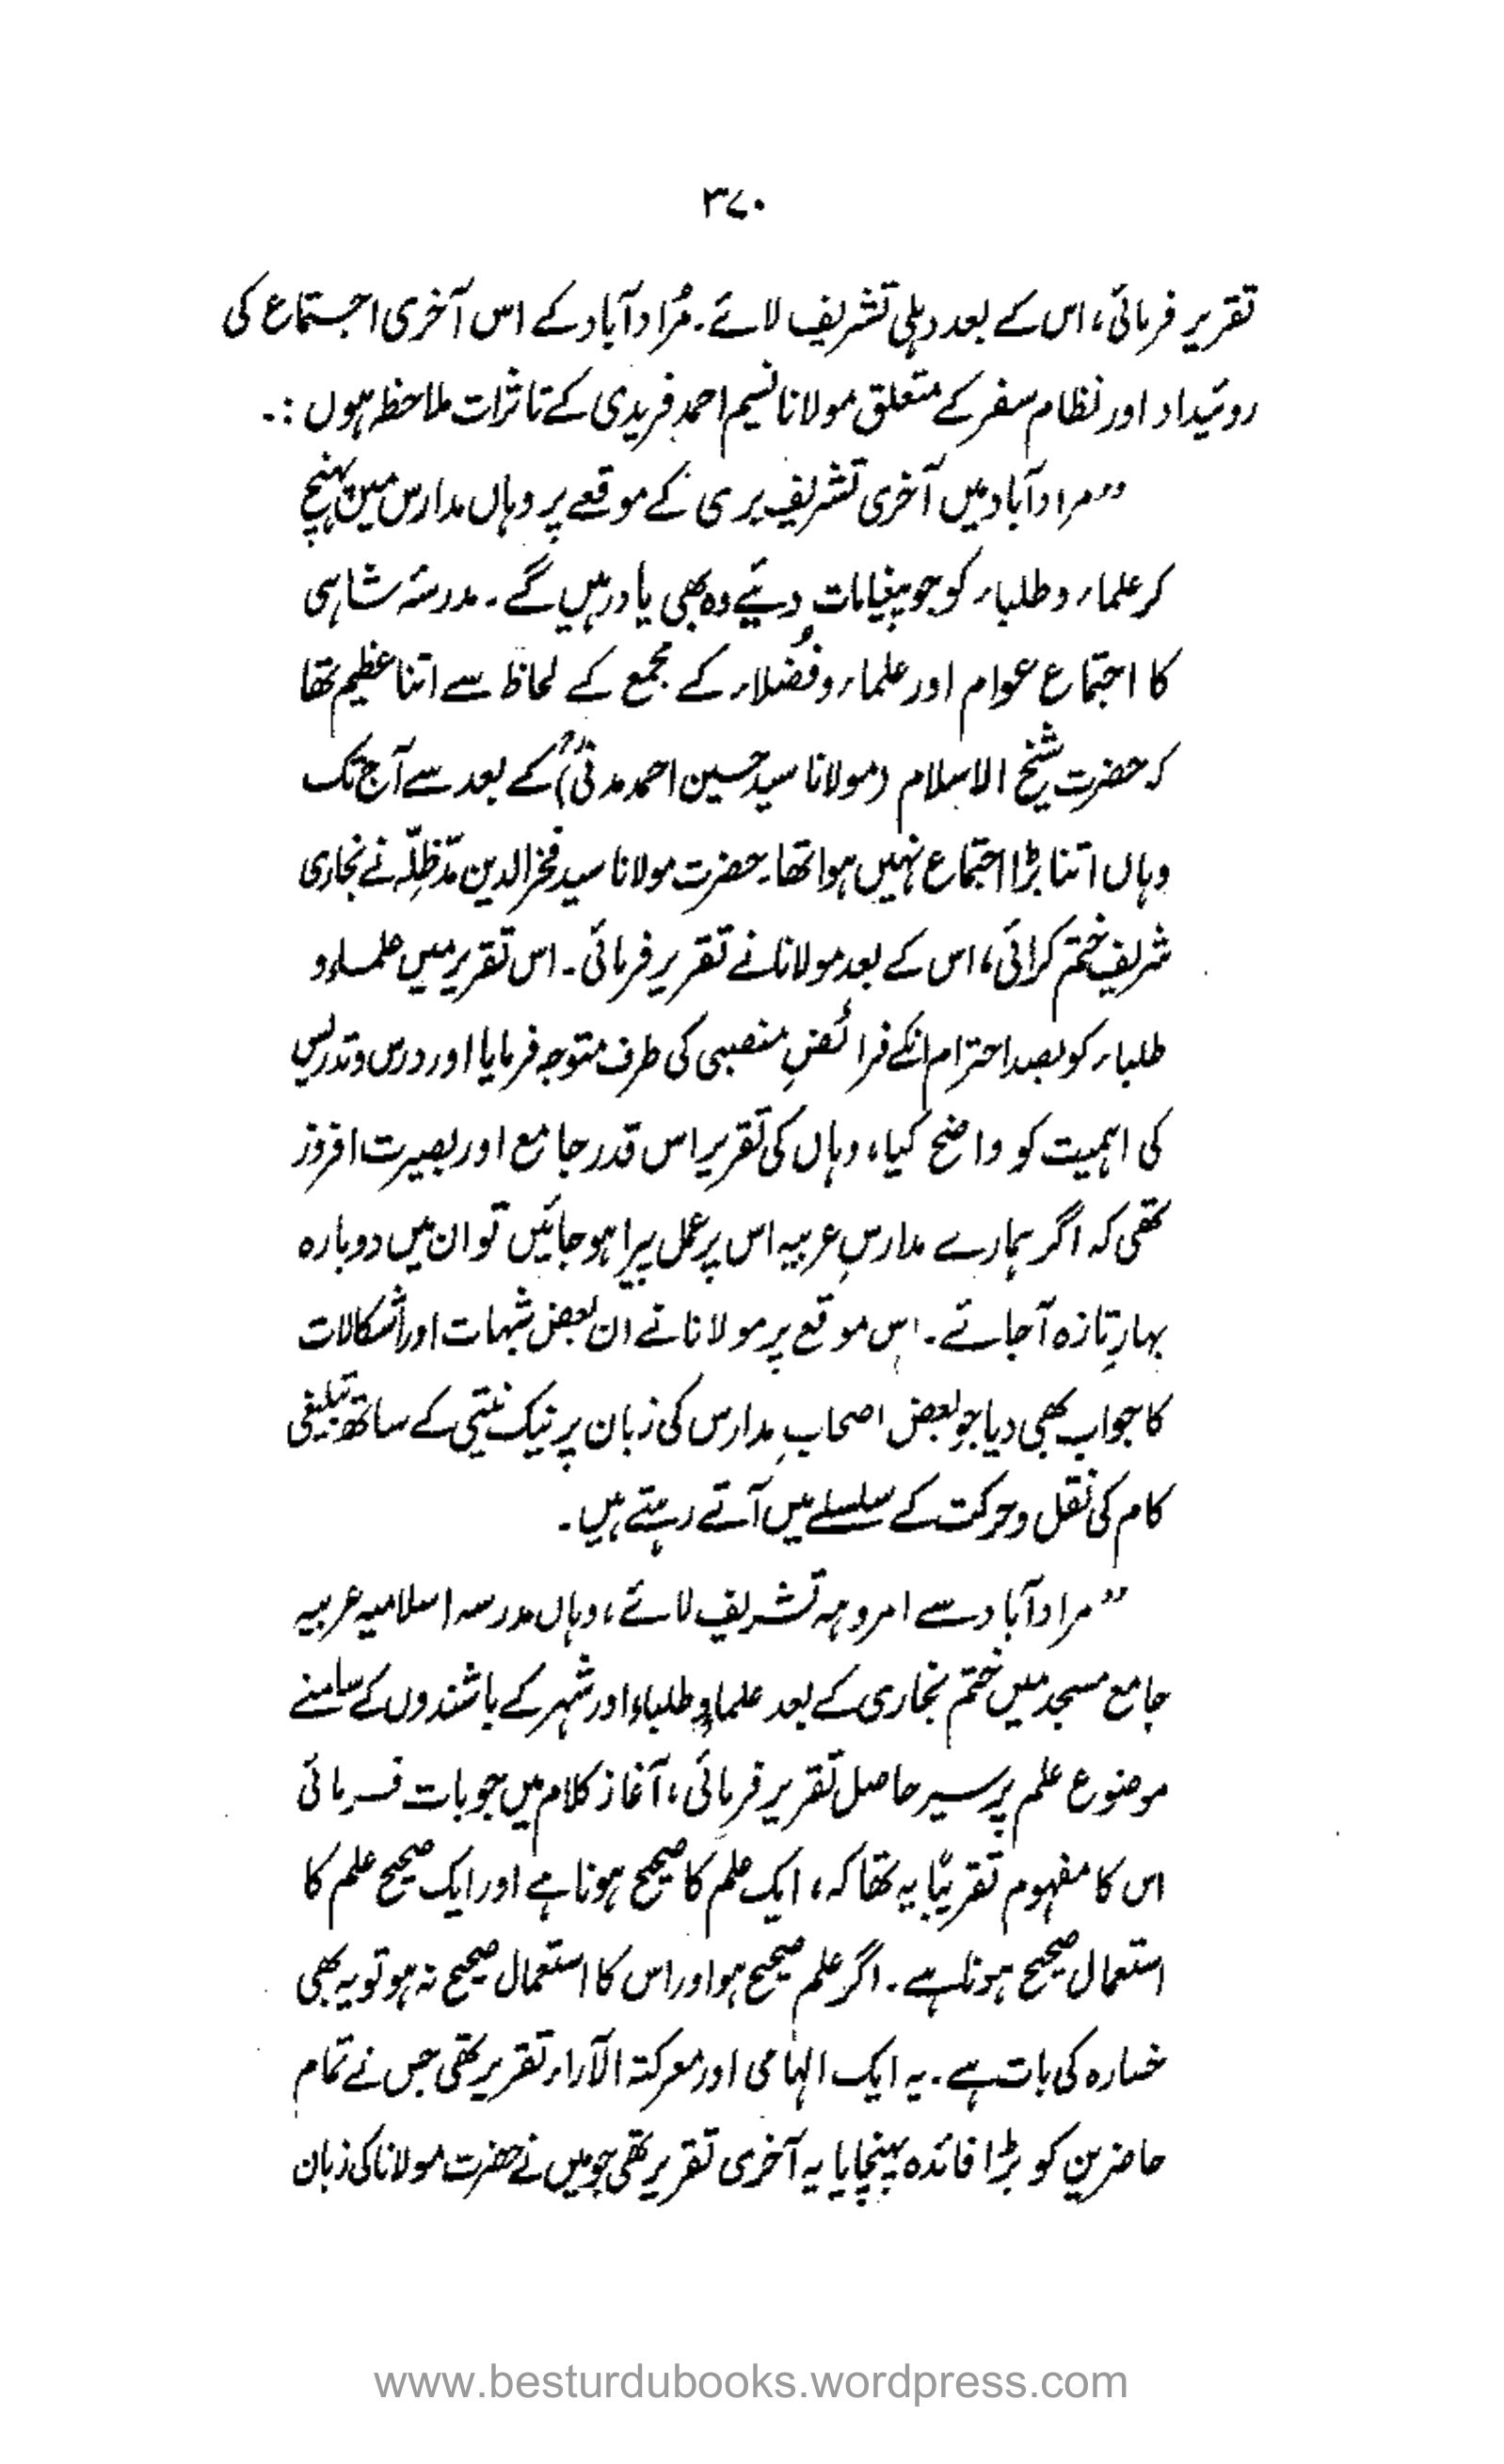 ۳۷۰
تقریر فرمائی، اس کے بعد دہلی تشریف لائے۔ مُراد آباد کے اس آخری اجتماع کی
روئیداد اور نظام سفر کے متعلق مولانا نسیم احمد فریدی کے تاثرات ملاحظہ ہوں :۔
”مراد آباد میں آخری تشریف بری کے موقعے پر وہاں مدارس میں پہنچ
کر علماء و طلباء کو جو پیغامات دیئے وہ بھی یاد رہیں گے۔ مدرسۂ شاہی
کا اجتماع عوام اور علماء و فُضلاء کے مجمع کے لحاظ سے اتنا عظیم تھا
کہ حضرت شیخ الاسلام (مولانا سید حسین احمد مدنیؒ) کے بعد سے آج تک
وہاں اتنا بڑا اجتماع نہیں ہوا تھا۔ حضرت مولانا سید فخر الدین مدّظلّہ نے بخاری
شریف ختم کرائی، اس کے بعد مولانا نے تقریر فرمائی۔ اس تقریر میں علماء و
طلباء کو بصد احترام انکے فرائضِ منصبی کی طرف متوجہ فرمایا اور درس و تدریس
کی اہمیت کو واضح کیا، وہاں کی تقریر اس قدر جامع اور بصیرت افروز
تھی کہ اگر ہمارے مدارسِ عربیہ اس پر عمل پیرا ہو جائیں تو ان میں دوبارہ
بہارِ تازہ آجائے۔ اس موقع پر مولانا نے ان بعض شبہات اور اشکالات
کا جواب بھی دیا جو بعض اصحابِ مدارس کی زبان پر نیک نیتی کے ساتھ تبلیغی
کام کی نقل و حرکت کے سلسلے میں آتے رہتے ہیں۔
”مراد آباد سے امروہہ تشریف لائے، وہاں مدرسہ اسلامیہ عربیہ
جامع مسجد میں ختم بخاری کے بعد علماء و طلباء اور شہر کے باشندوں کے سامنے
موضوع علم پر سیر حاصل تقریر فرمائی، آغاز کلام میں جو بات فرمائی
اس کا مفہوم تقریبًا یہ تھا کہ، ایک علم کا صحیح ہونا ہے اور ایک صحیح علم کا
استعمال صحیح ہونا ہے۔ اگر علم صحیح ہو اور اس کا استعمال صحیح نہ ہو تو یہ بھی
خسارہ کی بات ہے۔ یہ ایک الہامی اور معرکۃ الآراء تقریر تھی جس نے تمام
حاضرین کو بڑا فائدہ پہنچایا یہ آخری تقریر تھی جو میں نے حضرت مولانا کی زبان
www.besturdubooks.wordpress.com